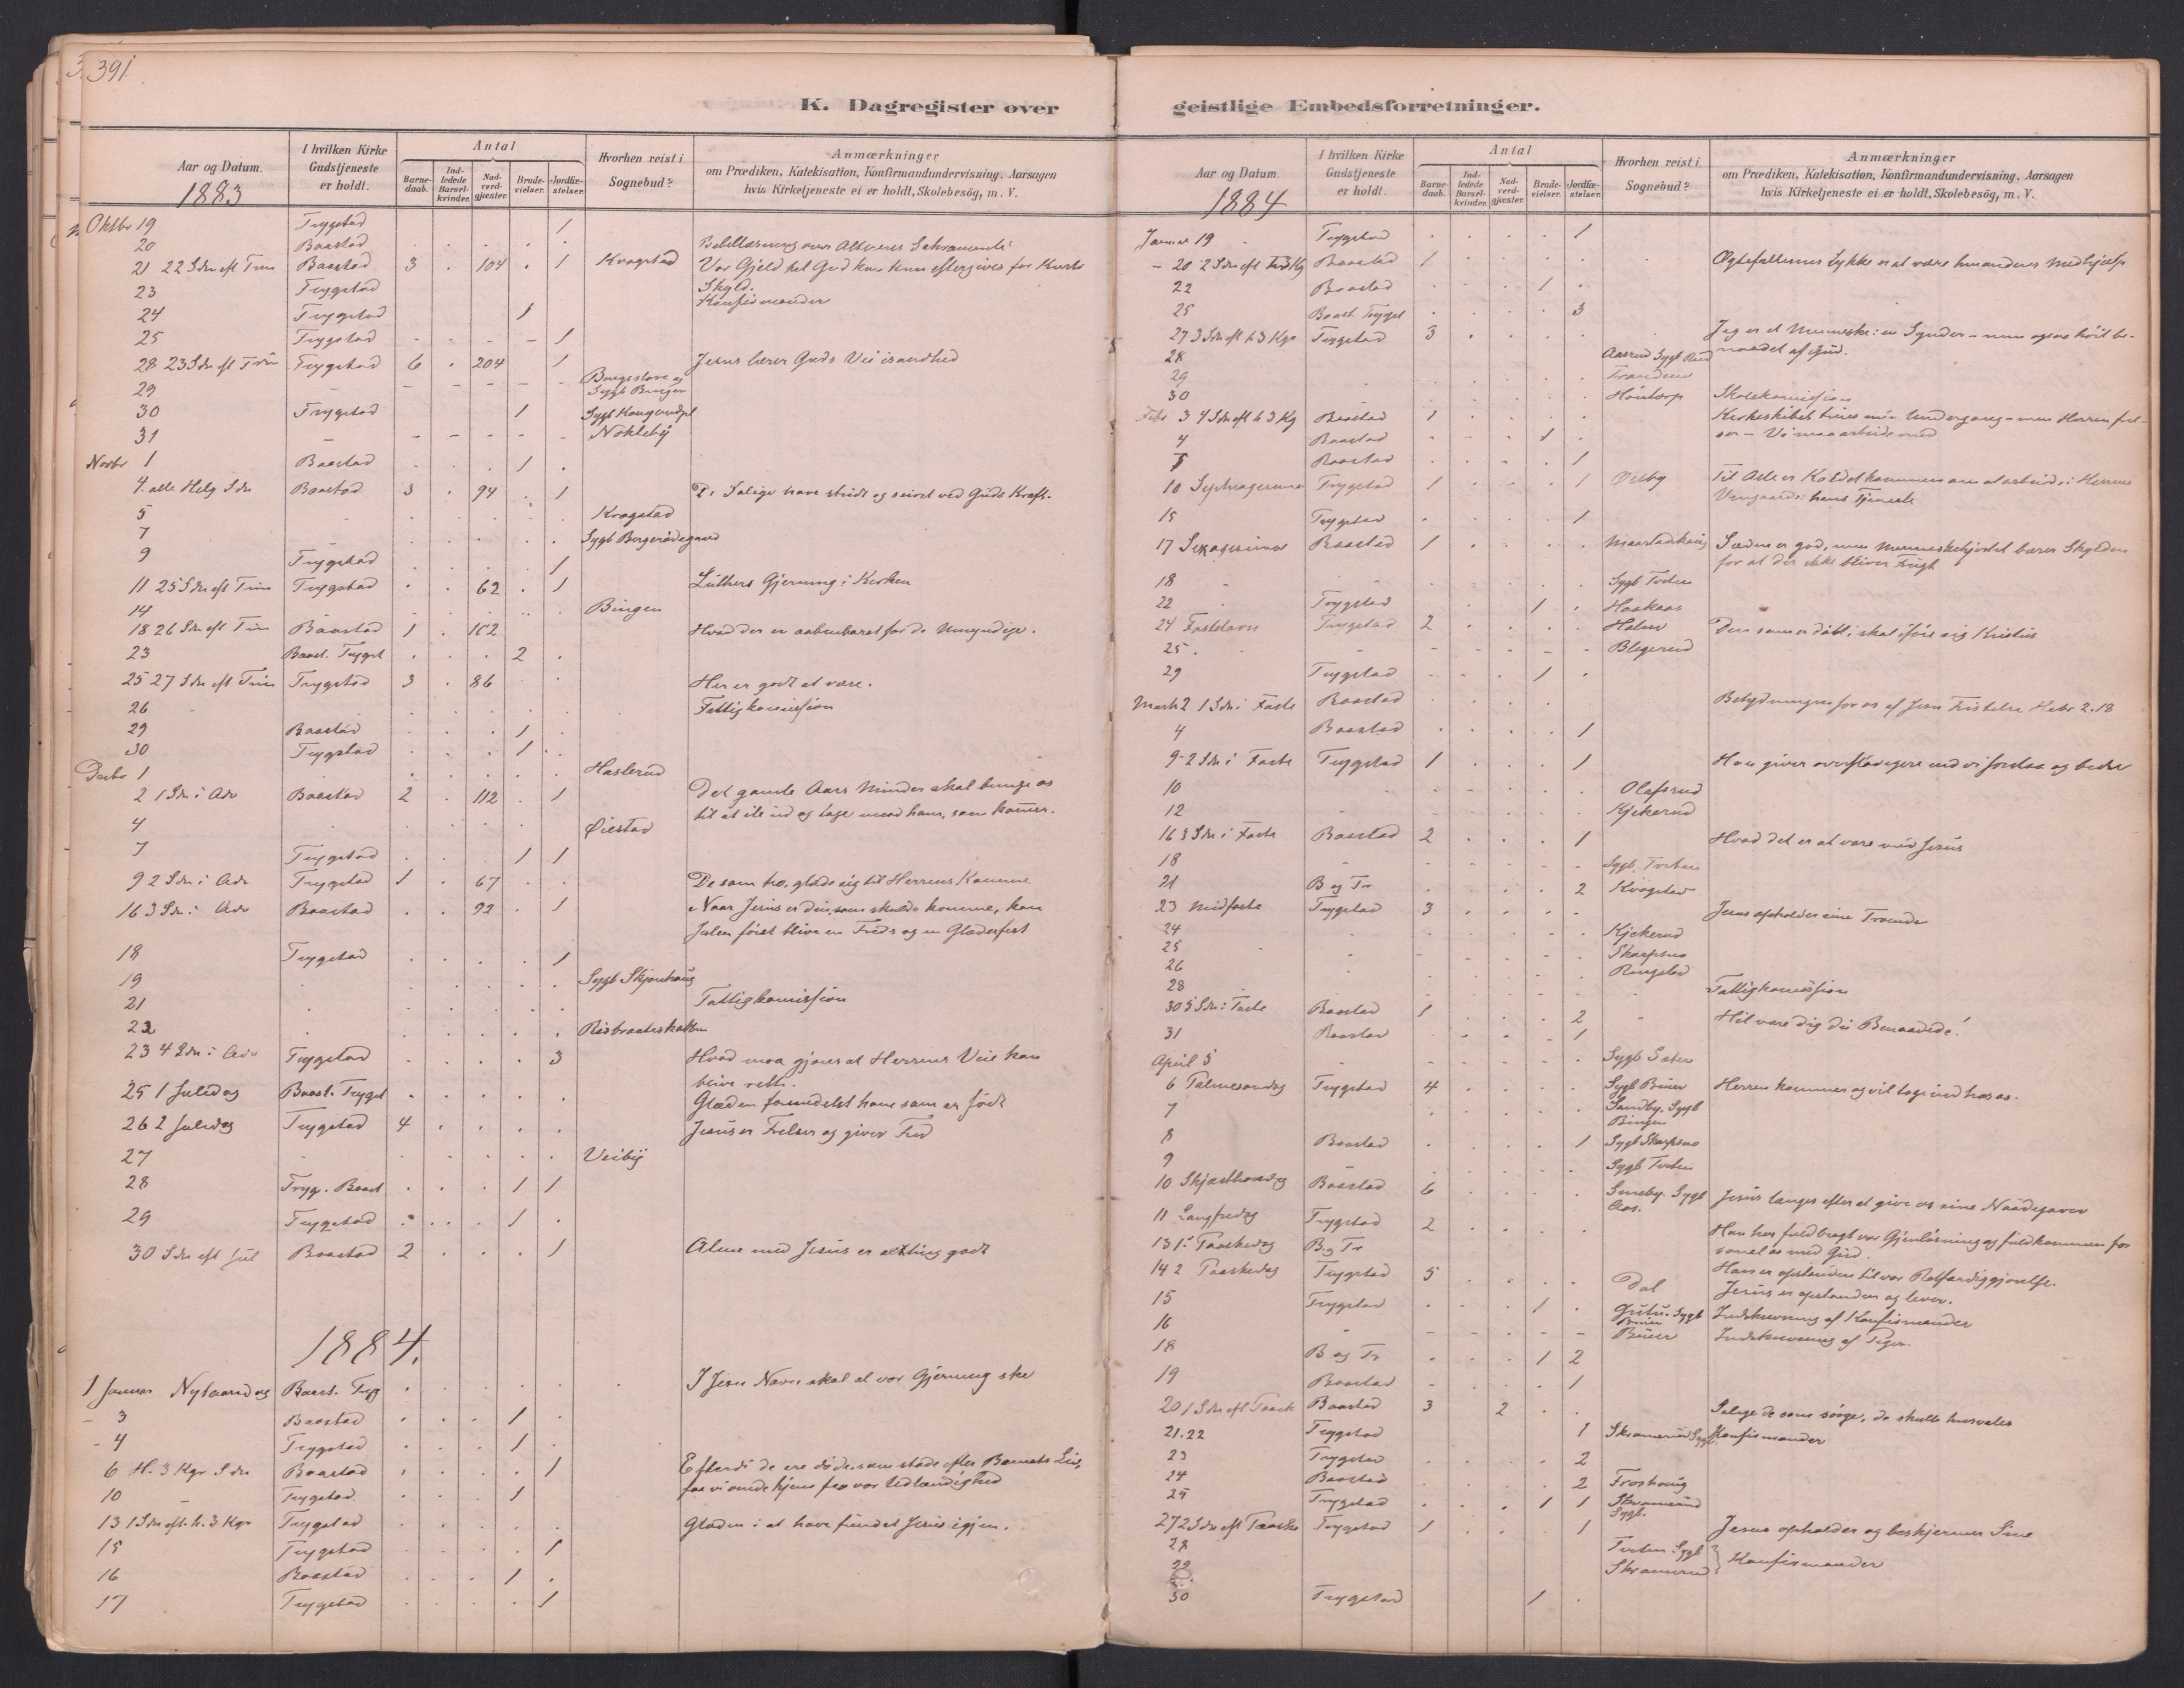 391
K. Dagregister over
Aar og Datum.
I hvilken Kirke Gudstjeneste er holdt.
Antal
Barne-daab.
Ind-ledede Barsel-kvinder.
Nad-verd-gjæster.
Brude-vielser.
Jordfæ-stelser.
Hvorhen reist i Sognebud?
Anmærkninger
om Prædiken, Katekisation, Konfirmandundervisning, Aarsagen
hvis Kirketjeneste ei er holdt, Skolebesög, m. V.
1883
Oktbr 19 Trygstad 1
20 Baastad Bibellæsning over Alterens Sakramente
21 22 Sdn eft Trin Baastad 3 104 1 Krogstad Vor Gjeld til Gud kan kun eftergives for Kristi
Skyld.
23 Trygstad Konfirmander
24 Trygstad 1
25 Trygstad 1
28 23 Sdn eft Trin Trygstad 6 204 1 Jesus lærer Guds Vei i sandhed
29 Sygb Bingen
30 Trygstad 1 Sygb
31 Nokleby
Novbr 1 Baastad 1
4. alle Helg Sdn Baastad 3 94 1 De Salige have stridt og seiret ved Guds Kraft.
5 Krogstad
7 Sygb Bergerødegaard
9 Trygstad 1
11 25 Sdn eft Trin Trygstad 62 1 Luthers Gjerning i Kirken
14 Bingen
18 26 Sdn eft Trin Baastad 1 102 Hvad der er aabenbaret for de Umyndige.
23 Baast. Trygst 2
25 27 Sdn eft Trin Trygstad 3 86 Her er godt at være.
26 Fattigkomission
29 Baastad 1
30 Trygstad 1
Decbr 1 Haslerud
2 1 Sdn i Adv Baastad 2 112 1 Det gamle Aars Minder skal bringe os
til at ile ud og tage mod ham, som kommer.
4 Øiestad
7 Trygstad 1 1
9 2 Sdn i Adv Trygstad 1 67 De som tro, glæde sig til Herrens Komme
16 3 Sdn i Adv Baastad 92 1 Naar Jesus er den, som skulde komme, kan
Julen först blive en Freds og en Glædesfest
18 Trygstad 1
19 Sygb Skjønhaug
21 Fattigkomission
22 Risbraateskakken
23 4 Sdn i Adv Trygstad 3 Hvad maa gjøres at Herrens Veie kan
blive rette.
25 1 Juledag Baast. Trygst Glæden formedelst ham som er født
26 2 Juledag Trygstad 4 Jesus er Frelser og giver Fred
27 Veiby
28 Tryg. Baast 1 1
29 Trygstad 1
30 Sdn eft Jul Baastad 2 1 Alene med Jesus er alting godt
1884.
1 Januar Nytaarsdag Baast. Tryg I Jesu Navn skal al vor Gjerning ske
- 3 Baastad 1
- 4 Trygstad 1
6 H. 3 Kgr Sdn Baastad 1 Efterdi de ere døde, som stode efter Barnets Liv,
faa vi vende hjem fra vor Udlændighed
10 Trygstad 1
13 1 Sdn eft. h. 3 Kgr Trygstad Glæden i at have fundet Jesus igjen.
15 Trygstad 1
16 Baastad 1
17 Trygstad 1
geistlige Embedsforretninger.
Aar og Datum.
I hvilken Kirke Gudstjeneste er holdt.
Antal
Barne-daab.
Ind-ledede Barsel-kvinder.
Nad-verd-gjæster.
Brude-vielser.
Jordfæ-stelser.
Hvorhen reist i Sognebud?
Anmærkninger
om Prædiken, Katekisation, Konfirmandundervisning, Aarsagen
hvis Kirketjeneste ei er holdt, Skolebesög, m. V.
1884
Januar 19 Trygstad 1
- 20 2 Sdn eft Baastad 1 Ægtefællernes Lykke er at være hinandens Medhjælp
22 Baastad 1
25 Baast. Trygst 3
27 3 Sdn eft h 3 Kgr Trygstad 3 Jeg er et Menneske: en Synder - men ogsaa høit be-
naadet af Gud.
28 Aasrud Sygb
29
30 Høntorp Skolekomission
Febr 3 4 Sdn eft h 3 Kg Baastad 1
4 Baastad 1
5 Baastad 1
10 Septuagesima Trygstad 1 1 Til Alle er Kaldet kommen om at arbeide i Herrens
Viingaard: hans Tjeneste
15 Trygstad 1
17 Sexagesima Baastad 1 Sæden er god, men Menneskehjertet bærer Skylden
for at der ikke bliver Frugt
18 Sygb Tveten
22 Trygstad 1 Haakaas
24 Fastelavn Trygstad 2 Holm Den som er døbt, skal iføre sig Kristus
25. Blegerud
29 Trygstad 1
Marts 2 1 Sdn i Faste Baastad Betydningen for os af Jesu Fristelse Hebr 2.18
4 Baastad 1
9 - 2 Sdn i Faste Trygstad 1 1 Han giver overflødigere end vi forstaa og bede
10 Olafsrud
12 Kjekerud
16 3 Sdn i Faste Baastad 2 1 Hvad det er at være med Jesus
18 Sygb. Tveten
21 B og Tr 2 Krogstad
23 Midfaste Trygstad 3 Jesus opholder sine Troende
24 Kjekerud
25 Skarpsno
26 Ringstad
28 Fattigkomission
30 5 Sdn i Faste Baastad 1 2 Hil være dig du Benaadede!
31 Baastad 1
April 5 Sygb Sæter
6 Palmesøndag Trygstad 4 Sygb Buer Herren kommer og vil tage ind hos os.
7 Sandby. Sygb
Bingen
8 Baastad 1 Sygb Skarpsno
9 Sygb Tveten
10 Skjærthorsdag Baastad 6 Smeby. Sygb
Aas. Jesus længes efter at give os sine Naadegaver
11 Langfredag Trygstad 2 Han har fuldbragt vor Gjenløsning og fuldkommen for
sonet os med Gud
13 1. Paaskedag B og Tr Han er opstanden til vor Retfærdiggjørelse.
14 2 Paaskedag Trygstad 5 Dal Jesus er opstanden og lever.
15 Trygstad 1 Sygb
Buer Indskrivning af Konfirmander
16 Buer Indskrivning af Piger.
18 B og Tr 1 2
19 Baastad 1
20 1 Sdn eft Paask Baastad 3 2 Salige de som sørge, de skulle husvales
21.22 Trygstad 1 Skramerud Sygb. Konfirmander
23 Trygstad 2
24 Baastad 2 Froshaug
25 Trygstad 1 1 Skramerud
Sygb.
27 2 Sdn eft Paaske Trygstad 1 1 Jesus opholder og beskjermer Sine
28 Tveten Sygb
29 Skramerud } Konfirmander
30 Trygstad 1